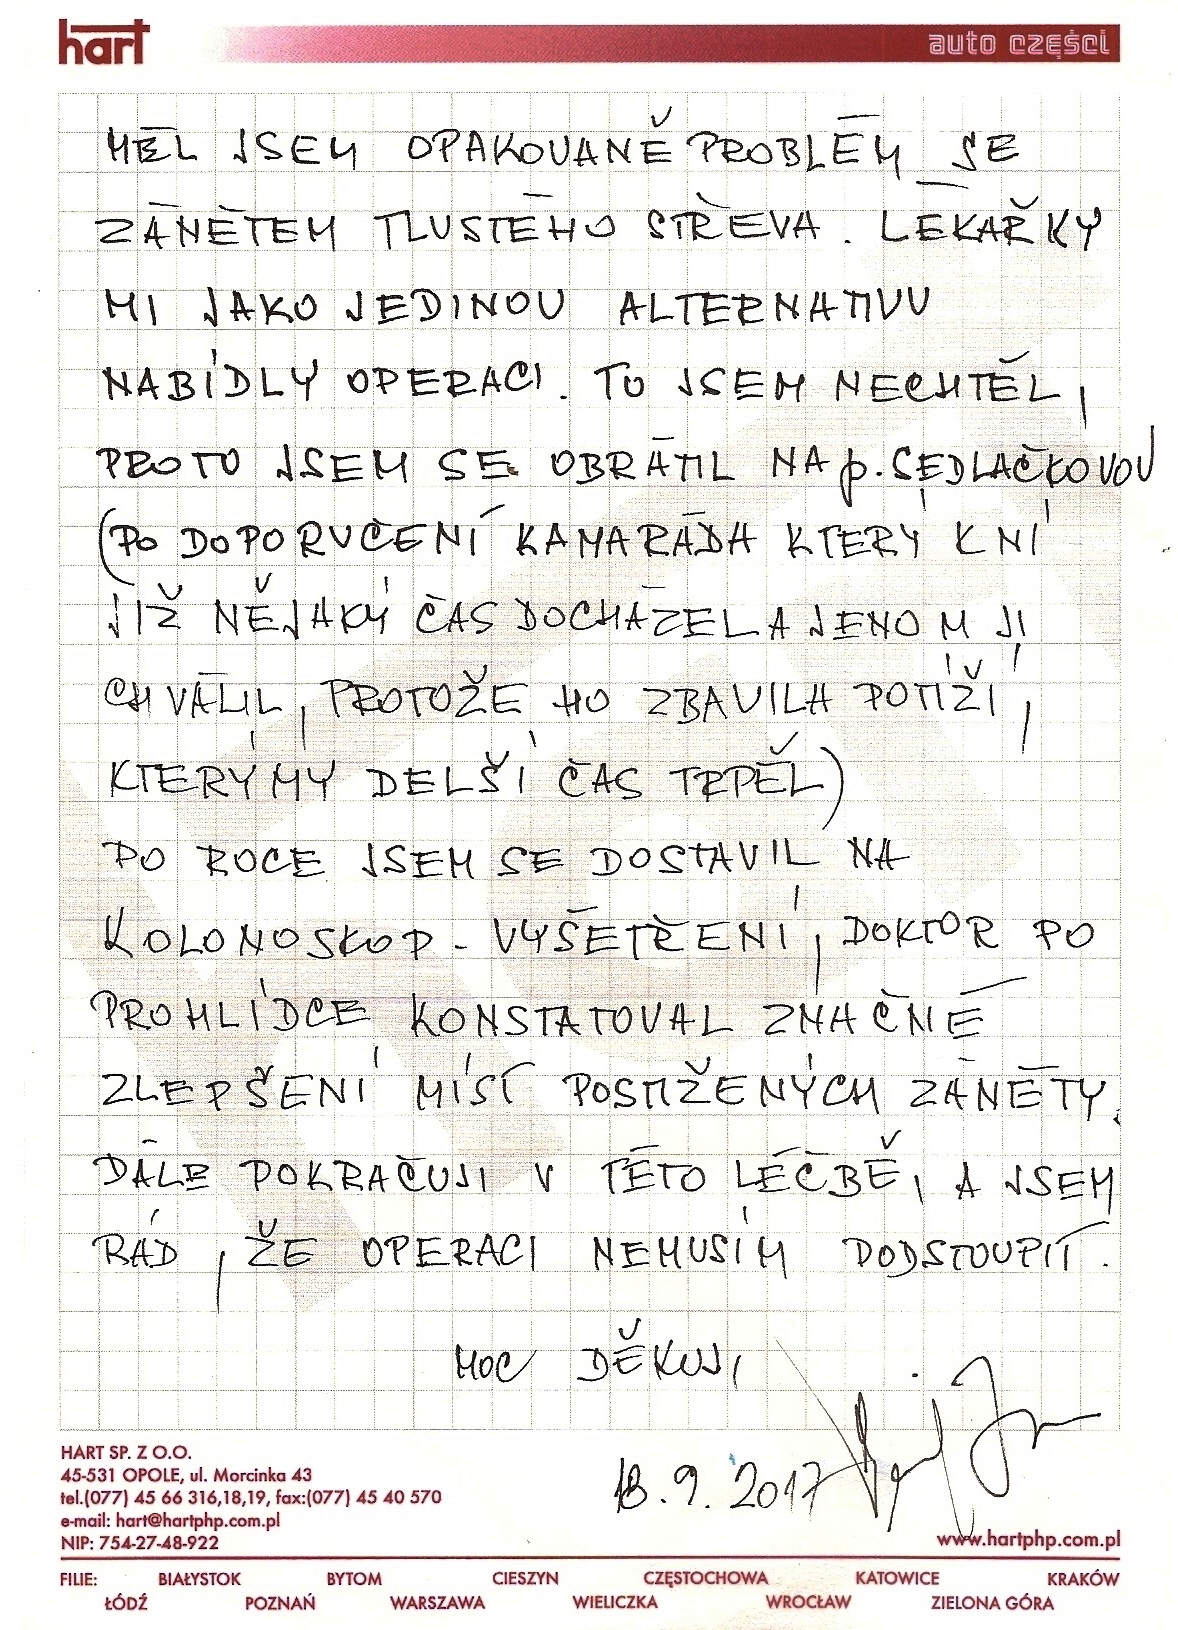 hart auto części
MĚL JSEM OPAKOVANĚ PROBLÉM SE
ZÁNĚTEM TLUSTÉHO STŘEVA. LÉKAŘKY
MI JAKO JEDINOU ALTERNATIVU
NABÍDLY OPERACI. TO JSEM NECHTĚL,
PROTO JSEM SE OBRÁTIL NA p. SEDLAČKOVOU
(PO DOPORUČENÍ KAMARÁDA KTERÝ K NÍ
JIŽ NĚJAKÝ ČAS DOCHÁZEL A JENOM JI
CHVÁLIL, PROTOŽE HO ZBAVILA POTÍŽÍ,
KTERÝMY DELŠÍ ČAS TRPĚL)
PO ROCE JSEM SE DOSTAVIL NA
KOLONOSKOP - VYŠETŘENÍ, DOKTOR PO
PROHLÍDCE KONSTATOVAL ZNAČNÉ
ZLEPŠENÍ MÍST POSTIŽENÝCH ZÁNĚTY.
DÁLE POKRAČUJI V TÉTO LÉČBĚ, A JSEM
RÁD, ŽE OPERACI NEMUSÍM PODSTOUPIT.
MOC DĚKUJI,
18.9.2017
HART SP. Z O.O.
45-531 OPOLE, ul. Morcinka 43
tel.(077) 45 66 316,18,19, fax:(077) 45 40 570
e-mail: hart@hartphp.com.pl
NIP: 754-27-48-922 www.hartphp.com.pl
FILIE: BIAŁYSTOK BYTOM CIESZYN CZĘSTOCHOWA KATOWICE KRAKÓW
ŁÓDŹ POZNAŃ WARSZAWA WIELICZKA WROCŁAW ZIELONA GÓRA